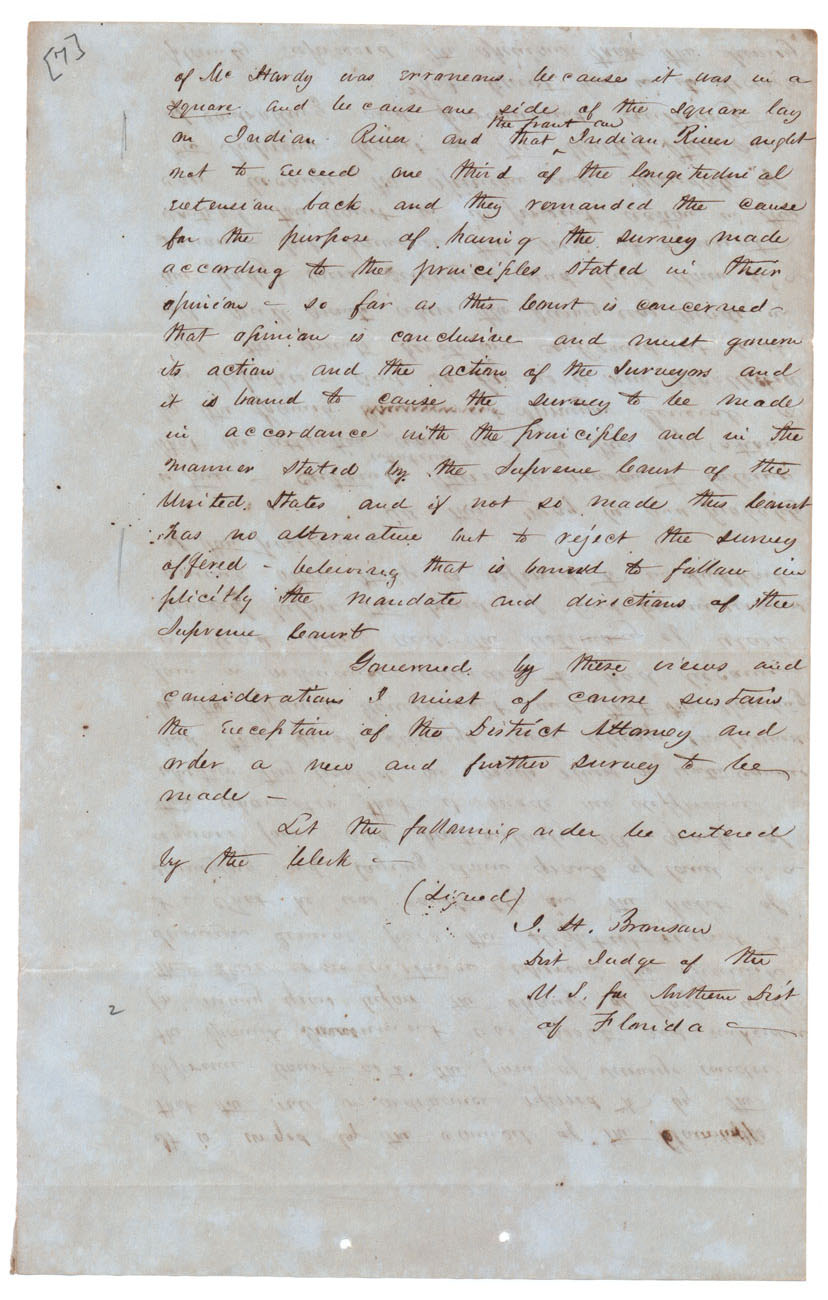 [7]
of Mc Hardy was erroneous because it was in a
square and because one side of the square lay
on Indian River and that the front on Indian River ought
not to exceed one third of the longitudinal
extension back and they remanded the cause
for the purpose of having the survey made
according to the principles stated in their
opinion - so far as this Court is concerned -
that opinion is conclusive and must govern
its action and the action of the Surveyors and
it is bound to cause the survey to be made
in accordance with the principles and in the
manner stated by the Supreme Court of the
United States and if not so made this Court
has no alternative but to reject the survey
offered - believing that is bound to follow im
plicitly the mandate and directions of the
Supreme Court
Governed by these views and
considerations I must of course sustain
the exception of the District Attorney and
order a new and further survey to be
made -
Let the following order be entered
by the Clerk -
(Signed)
I. H. Bronson
Dist Judge of the
U. S. for Northern Dist
of Florida -
2